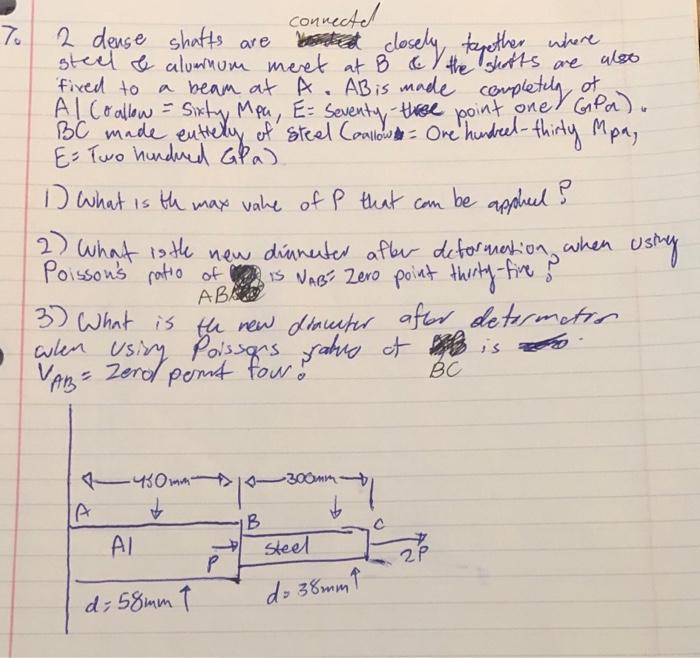 connected
7. 2 dense shafts are closely together where
steel & aluminum meet at B & the shafts are also
fixed to a beam at A. AB is made completely of
Al (σallow = Sixty Mpa, E= Seventy-three point one GPa).
BC made entirely of steel (σallow = One hundred-thirty Mpa,
E= Two hundred GPa)
1) What is the max value of P that can be applied?
2) What is the new diameter after deformation, when using
Poisson's ratio of is VAB= Zero point thirty-five?
AB
3) What is the new diameter after deformation
when using Poissons ratio of is
VAB = Zero point four?
BC
450mm 300mm
A B C
Al P steel 2P
d=58mm d=38mm